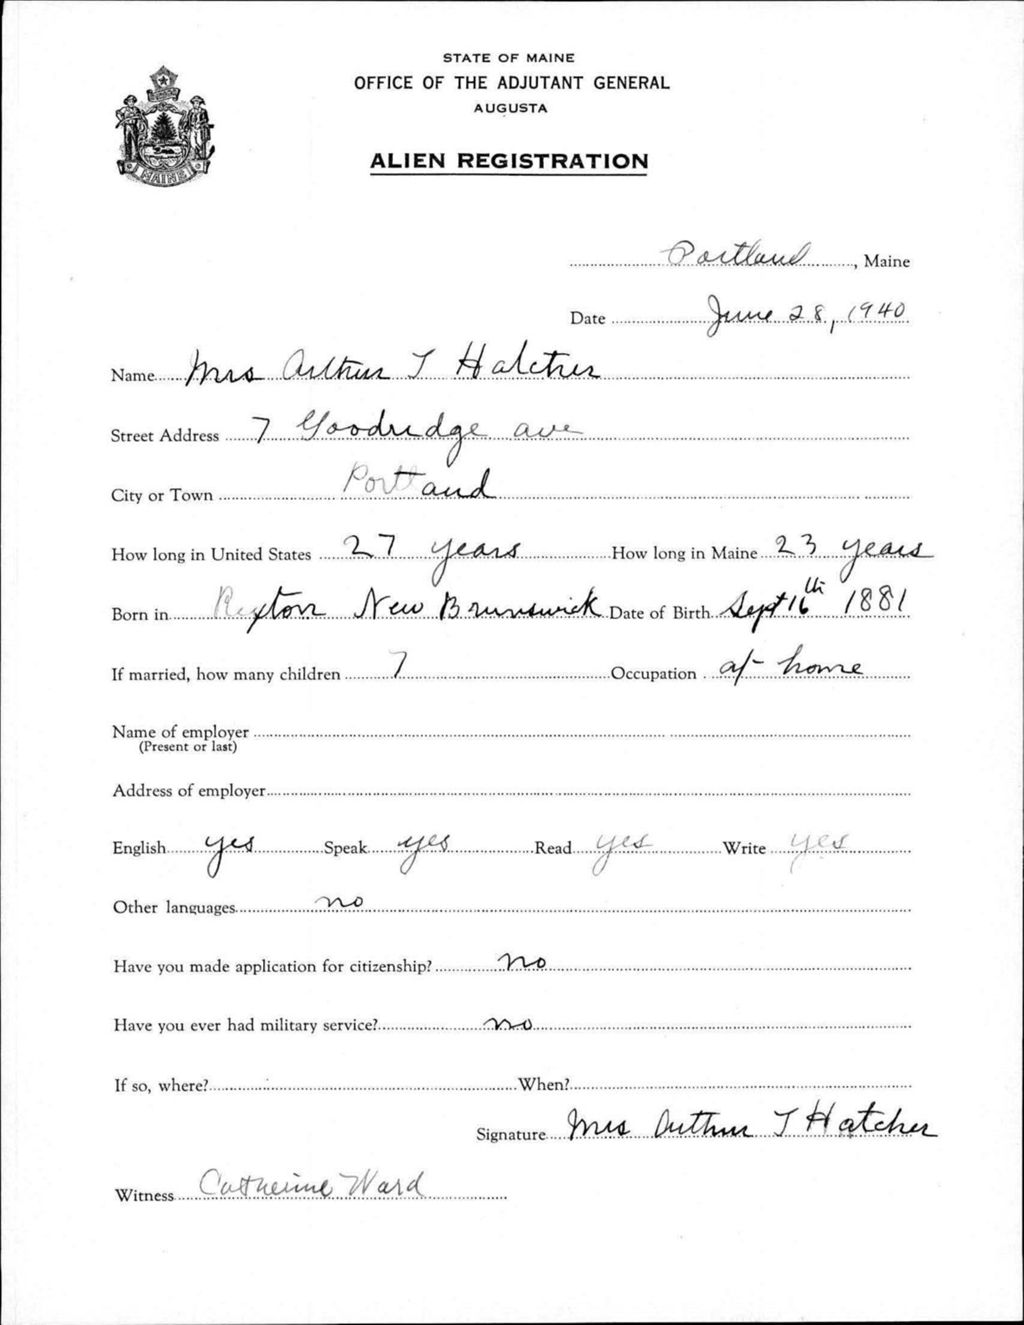 STATE OF MAINE
OFFICE OF THE ADJUTANT GENERAL
AUGUSTA
ALIEN REGISTRATION
MAINE
Portland, Maine
Date June 28, 1940
Name Mrs Arthur T Hatcher
Street Address 7 Goodridge ave
City or Town Portland
How long in United States 27 years How long in Maine 23 years
Born in Rexton New Brunswick Date of Birth Sept 16th 1881
If married, how many children 7 Occupation at home
Name of employer
(Present or last)
Address of employer
English yes Speak yes Read yes Write yes
Other languages no
Have you made application for citizenship? no
Have you ever had military service? no
If so, where? When?
Signature Mrs Arthur T Hatcher
Witness Catherine Ward